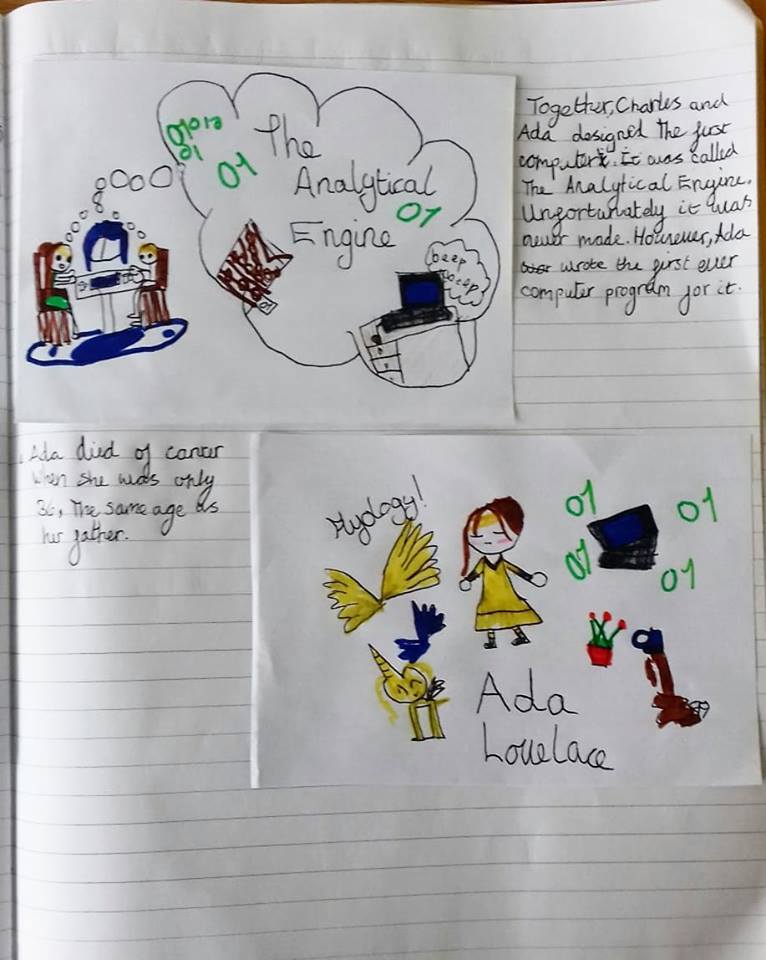 01010
01
01
The
Analytical
01
Engine
beep
beep
Together, Charles and
Ada designed the first
computer. It was called
The Analytical Engine.
Unfortunately it was
never made. However, Ada
wrote the first ever
computer program for it.
Ada died of cancer
when she was only
36, the same age as
her father.
Flyology!
01
01
01
01
Ada
Lovelace